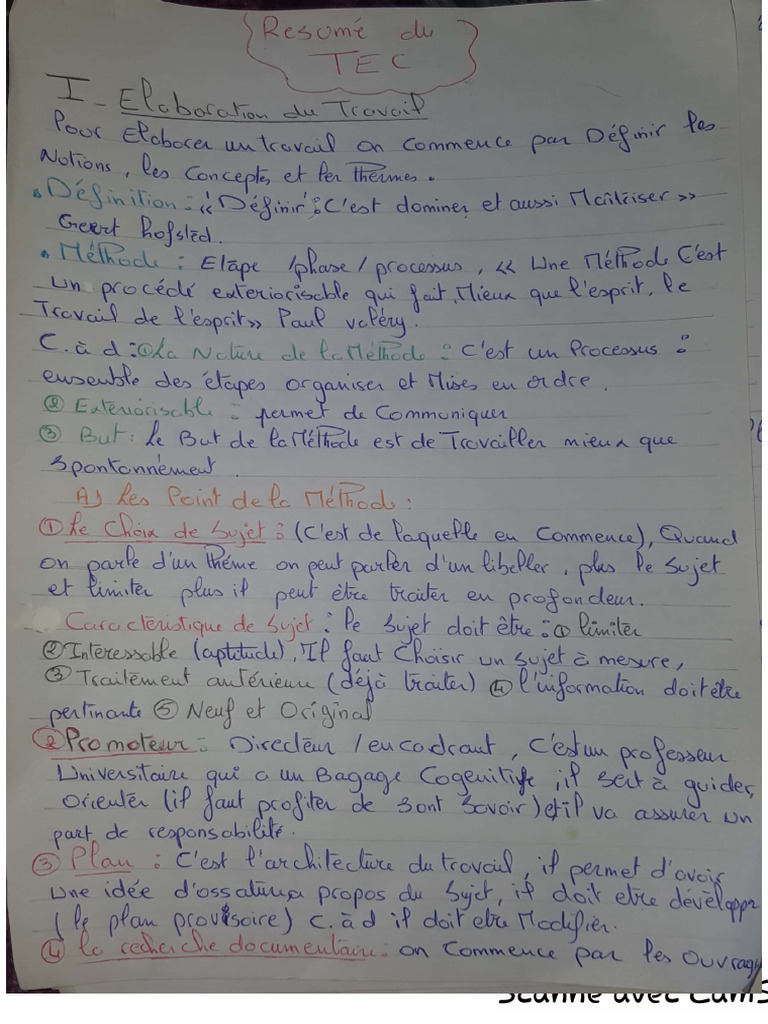 Resomé du
TEC
I - Elaboration du Travail
Pour Elaborer un travail on commence par Définir les
Notions, les Concepts, et les thermes.
Définition : « 'Définir' : C'est dominer et aussi Maîtriser »
Geert hofsted.
Méthode : Etape /phase / processus, « Une Méthode C'est
un procédé exteriorisable qui fait Mieux que l'esprit, le
Travail de l'esprit » Paul valéry.
C. à d : ① La Nature de la Méthode : C'est un Processus :
ensemble des étapes organiser et Mises en ordre.
② Extériorisable : permet de Communiquer
③ But : le But de la Méthode est de Travailler mieux que
spontonnément.
A) Les Point de la Méthode :
① Le Choix de Sujet : (C'est de laquelle en Commence), Quand
on parle d'un théme on peut parler d'un libeller, plus le sujet
et limiter plus il peut être traiter en profondeur.
Caractéristique de Sujet : le sujet doit être : ① limiter
② Interessable (aptitude), Il faut Choisir un sujet à mesure,
③ Traitement antérieur (déjà traiter) ④ l'information doit être
pertinante ⑤ Neuf et Original
② Promoteur : Directeur / encadrant, C'est un professeur
Universitaire qui a un Bagage Cogenitife, il sert à guider,
orienter (il faut profiter de sont savoir) et il va assurer un
part de responsabilité.
③ Plan : C'est l'architecture du travail, il permet d'avoir
une idée d'ossature propos du sujet, il doit etre dévelopr
(le plan provisoire) C. à d il doit etre Modifier.
④ la recherche documentaire : on Commence par les ouvrag
Scanné avec CamS